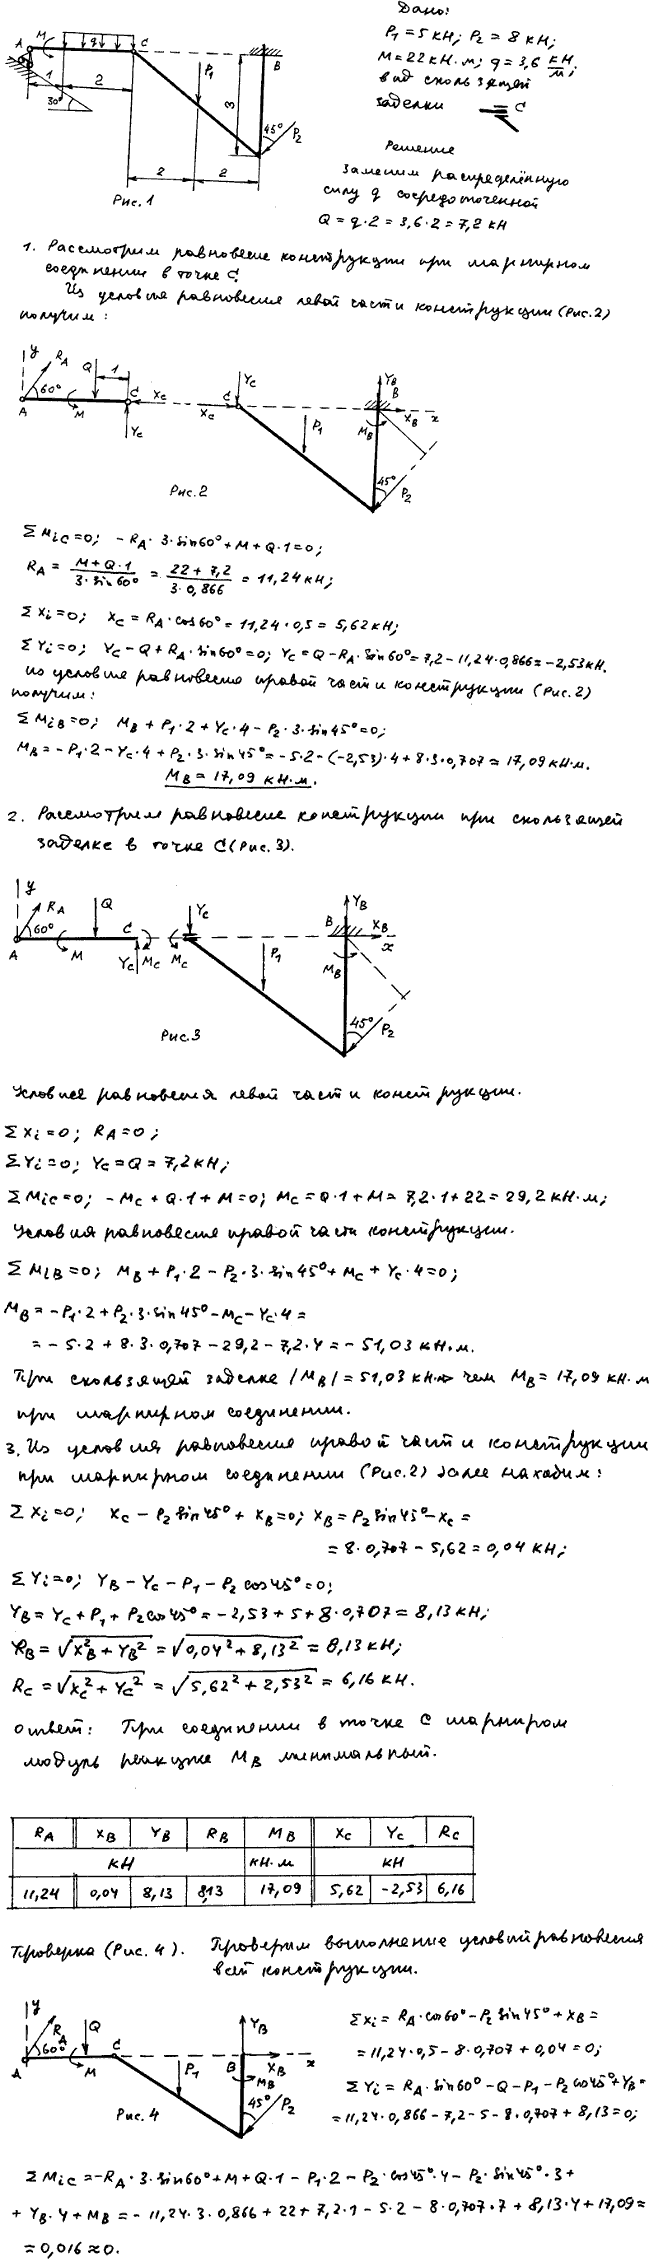 Дано:
P₁ = 5 кН; P₂ = 8 кН;
M = 22 кН·м; q = 3,6 кН/м;
вид скользящей
заделки C
Решение
Заменим распределённую
силу q сосредоточенной
Q = q·2 = 3,6·2 = 7,2 кН
A M q C P₁ B
1 2 3 45° P₂
30°
2 2
Рис. 1
1. Рассмотрим равновесие конструкции при шарнирном
соединении в точке C.
Из условия равновесия левой части конструкции (Рис.2)
получим:
y R_A Q 1 Y_C Y_B B
60° C X_C X_C C P₁ M_B X_B x
A M Y_C 45° P₂
Рис. 2
ΣM_iC=0; -R_A·3·sin60°+M+Q·1=0;
R_A = (M+Q·1)/(3·sin60°) = (22+7,2)/(3·0,866) = 11,24 кН;
ΣX_i=0; X_C = R_A·cos60° = 11,24·0,5 = 5,62 кН;
ΣY_i=0; Y_C-Q+R_A·sin60°=0; Y_C=Q-R_A·sin60°=7,2-11,24·0,866=-2,53кН.
из условия равновесия правой части конструкции (Рис.2)
получим:
ΣM_iB=0; M_B+P₁·2+Y_C·4-P₂·3·sin45°=0;
M_B=-P₁·2-Y_C·4+P₂·3·sin45°=-5·2-(-2,53)·4+8·3·0,707=17,09 кН·м.
M_B = 17,09 кН·м.
2. Рассмотрим равновесие конструкции при скользящей
заделке в точке C (Рис.3).
y R_A Q Y_C Y_B
60° C B X_B
A M Y_C M_C M_C P₁ M_B x
45° P₂
Рис. 3
Условие равновесия левой части конструкции.
ΣX_i=0; R_A=0;
ΣY_i=0; Y_C=Q=7,2 кН;
ΣM_iC=0; -M_C+Q·1+M=0; M_C=Q·1+M=7,2·1+22=29,2 кН·м;
Условия равновесия правой части конструкции.
ΣM_iB=0; M_B+P₁·2-P₂·3·sin45°+M_C+Y_C·4=0;
M_B=-P₁·2+P₂·3·sin45°-M_C-Y_C·4=
=-5·2+8·3·0,707-29,2-7,2·4=-51,03 кН·м.
При скользящей заделке |M_B|=51,03 кН·м> чем M_B=17,09 кН·м
при шарнирном соединении.
3. Из условия равновесия правой части конструкции
при шарнирном соединении (Рис.2) далее находим:
ΣX_i=0; X_C-P₂sin45°+X_B=0; X_B=P₂sin45°-X_C=
=8·0,707-5,62=0,04 кН;
ΣY_i=0; Y_B-Y_C-P₁-P₂cos45°=0;
Y_B=Y_C+P₁+P₂cos45°=-2,53+5+8·0,707=8,13 кН;
R_B=√(X_B²+Y_B²)=√(0,04²+8,13²)=8,13 кН;
R_C=√(X_C²+Y_C²)=√(5,62²+2,53²)=6,16 кН.
Ответ: При соединении в точке C шарниром
модуль реакции M_B минимальный.
R_A X_B Y_B R_B M_B X_C Y_C R_C
кН кН·м кН
11,24 0,04 8,13 8,13 17,09 5,62 -2,53 6,16
Проверка (Рис. 4). Проверим выполнение условий равновесия
всей конструкции.
y R_A Q C Y_B
60° P₁ B X_B x
A M M_B
45° P₂
Рис. 4
ΣX_i=R_A·cos60°-P₂sin45°+X_B=
=11,24·0,5-8·0,707+0,04=0;
ΣY_i=R_A·sin60°-Q-P₁-P₂cos45°+Y_B=
=11,24·0,866-7,2-5-8·0,707+8,13=0;
ΣM_iC=-R_A·3·sin60°+M+Q·1-P₁·2-P₂·cos45°·4-P₂·sin45°·3+
+Y_B·4+M_B=-11,24·3·0,866+22+7,2·1-5·2-8·0,707·7+8,13·4+17,09=
=0,016≈0.